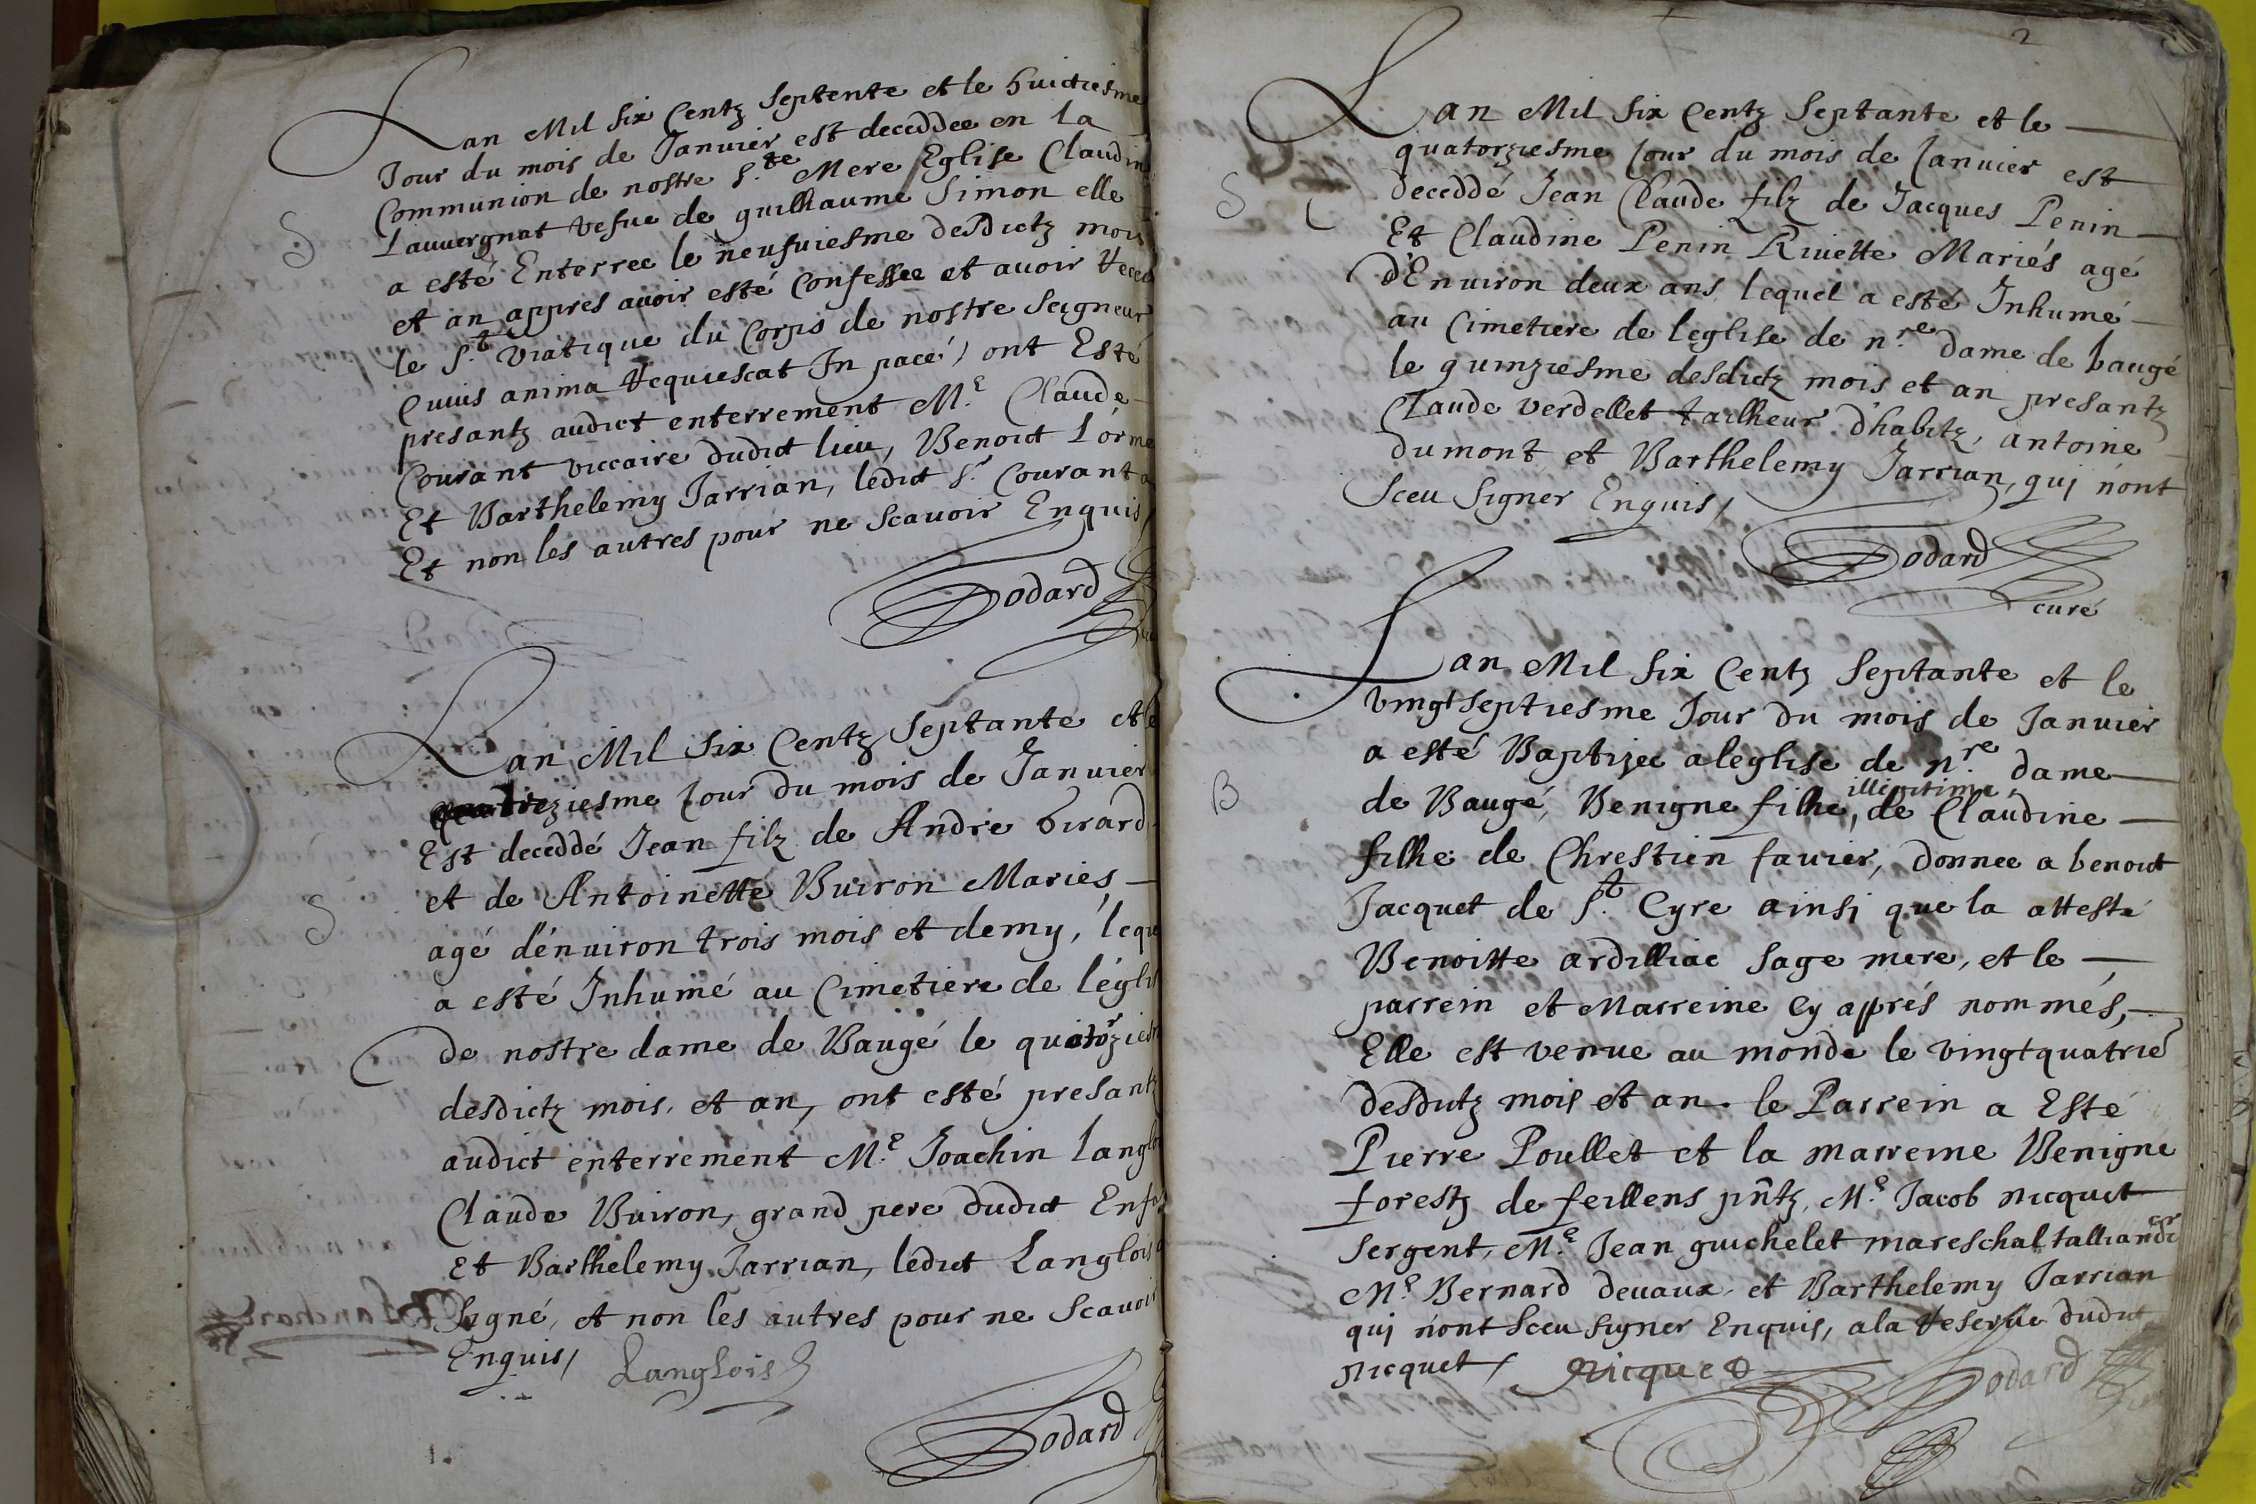 Lan Mil six Centz Septente et le huictiesme
Jour du mois de Janvier est deceddee en la
Communion de nostre S.te Mere Eglise Claudin
Lauvergnat vefue de guilhaume Simon elle
a esté Enterree le neufuiesme desdictz mois
et an appres avoir esté Confessee et avoir receu
le S.t Viatique du Corps de nostre Seigneur
Cuius anima requiescat In pacé) ont Esté
presantz audict enterrement M.e Claude
Courant viccaire dudict lieu, Benoict Lorme
Et Barthelemy Jarrian, ledict S.r Courant a
Et non les autres pour ne Scavoir Enquis/
Dodard
S
Lan Mil Six Centz Septante et le
treziesme Jour du mois de Janvier
Est deceddé Jean filz de Andre Girard
et de Antoinette Buiron Mariés,
agé d'énuiron trois mois et demy, leque
a esté Inhumé au Cimetiere de léglis
de nostre dame de Baugé le quatorzies
desdictz mois, et an, ont esté presantz
audict enterrement M.e Joachin Langlo
Claude Buiron, grand pere dudict Enfa
Et Barthelemy Jarrian, ledict Langlois a
Signé, et non les autres pour ne Scavoir
Enquis/ Langlois
Dodard
S
2
Lan Mil Six Centz Septante et le
quatorziesme Jour du mois de Janvier est
deceddé Jean Claude filz de Jacques Penin
Et Claudine Penin Rivette Mariés agé
d'Enuiron deux ans lequel a esté Inhumé
au Cimetiere de leglise de n.re dame de baugé
le quinziesme desdictz mois et an presantz
Claude Verdellet tailheur d'habitz, antoine
dumont et Barthelemy Jarrian, qui nont
Sceu Signer Enquis/
Dodard
curé
S
Lan Mil Six Centz Septante et le
vingtseptiesme Jour du mois de Janvier
a esté Baptizee a leglise de n.re dame
illegitime
de Baugé, Benigne filhe, de Claudine
filhe de Chrestien favier, donnee a benoict
Jacquet de S.t Cyre ainsi que la attesté
Benoitte ardilliac Sage mere, et le
parrein et Marreine Cy aprés nommés,
Elle est venue au monde le vingtquatrie
desdictz mois et an. le Parrein a Esté
Pierre Poullet et la marreine Benigne
forestz de feillens pñtz, M.e Jacob nicquet
Sergent, M.e Jean guichelet mareschal talliandier
M.e Bernard devaux, et Barthelemy Jarrian
qui nont Sceu Signer Enquis, a la reserve dudict
nicquet/ Nicquet
Dodard
B